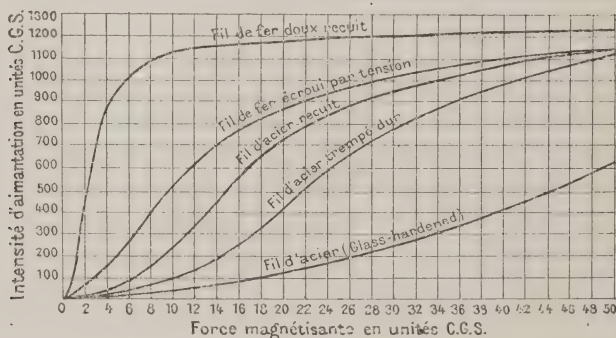 Intensité d'aimantation en unités C.G.S.
1300
1200
1100
1000
900
800
700
600
500
400
300
200
100
Fil de fer doux recuit
Fil de fer écroui par tension
Fil d'acier recuit
Fil d'acier trempé dur
Fil d'acier (Glass-hardened)
0 2 4 6 8 10 12 14 16 18 20 22 24 26 28 30 32 34 36 38 40 42 44 46 48 50
Force magnétisante en unités C.G.S.